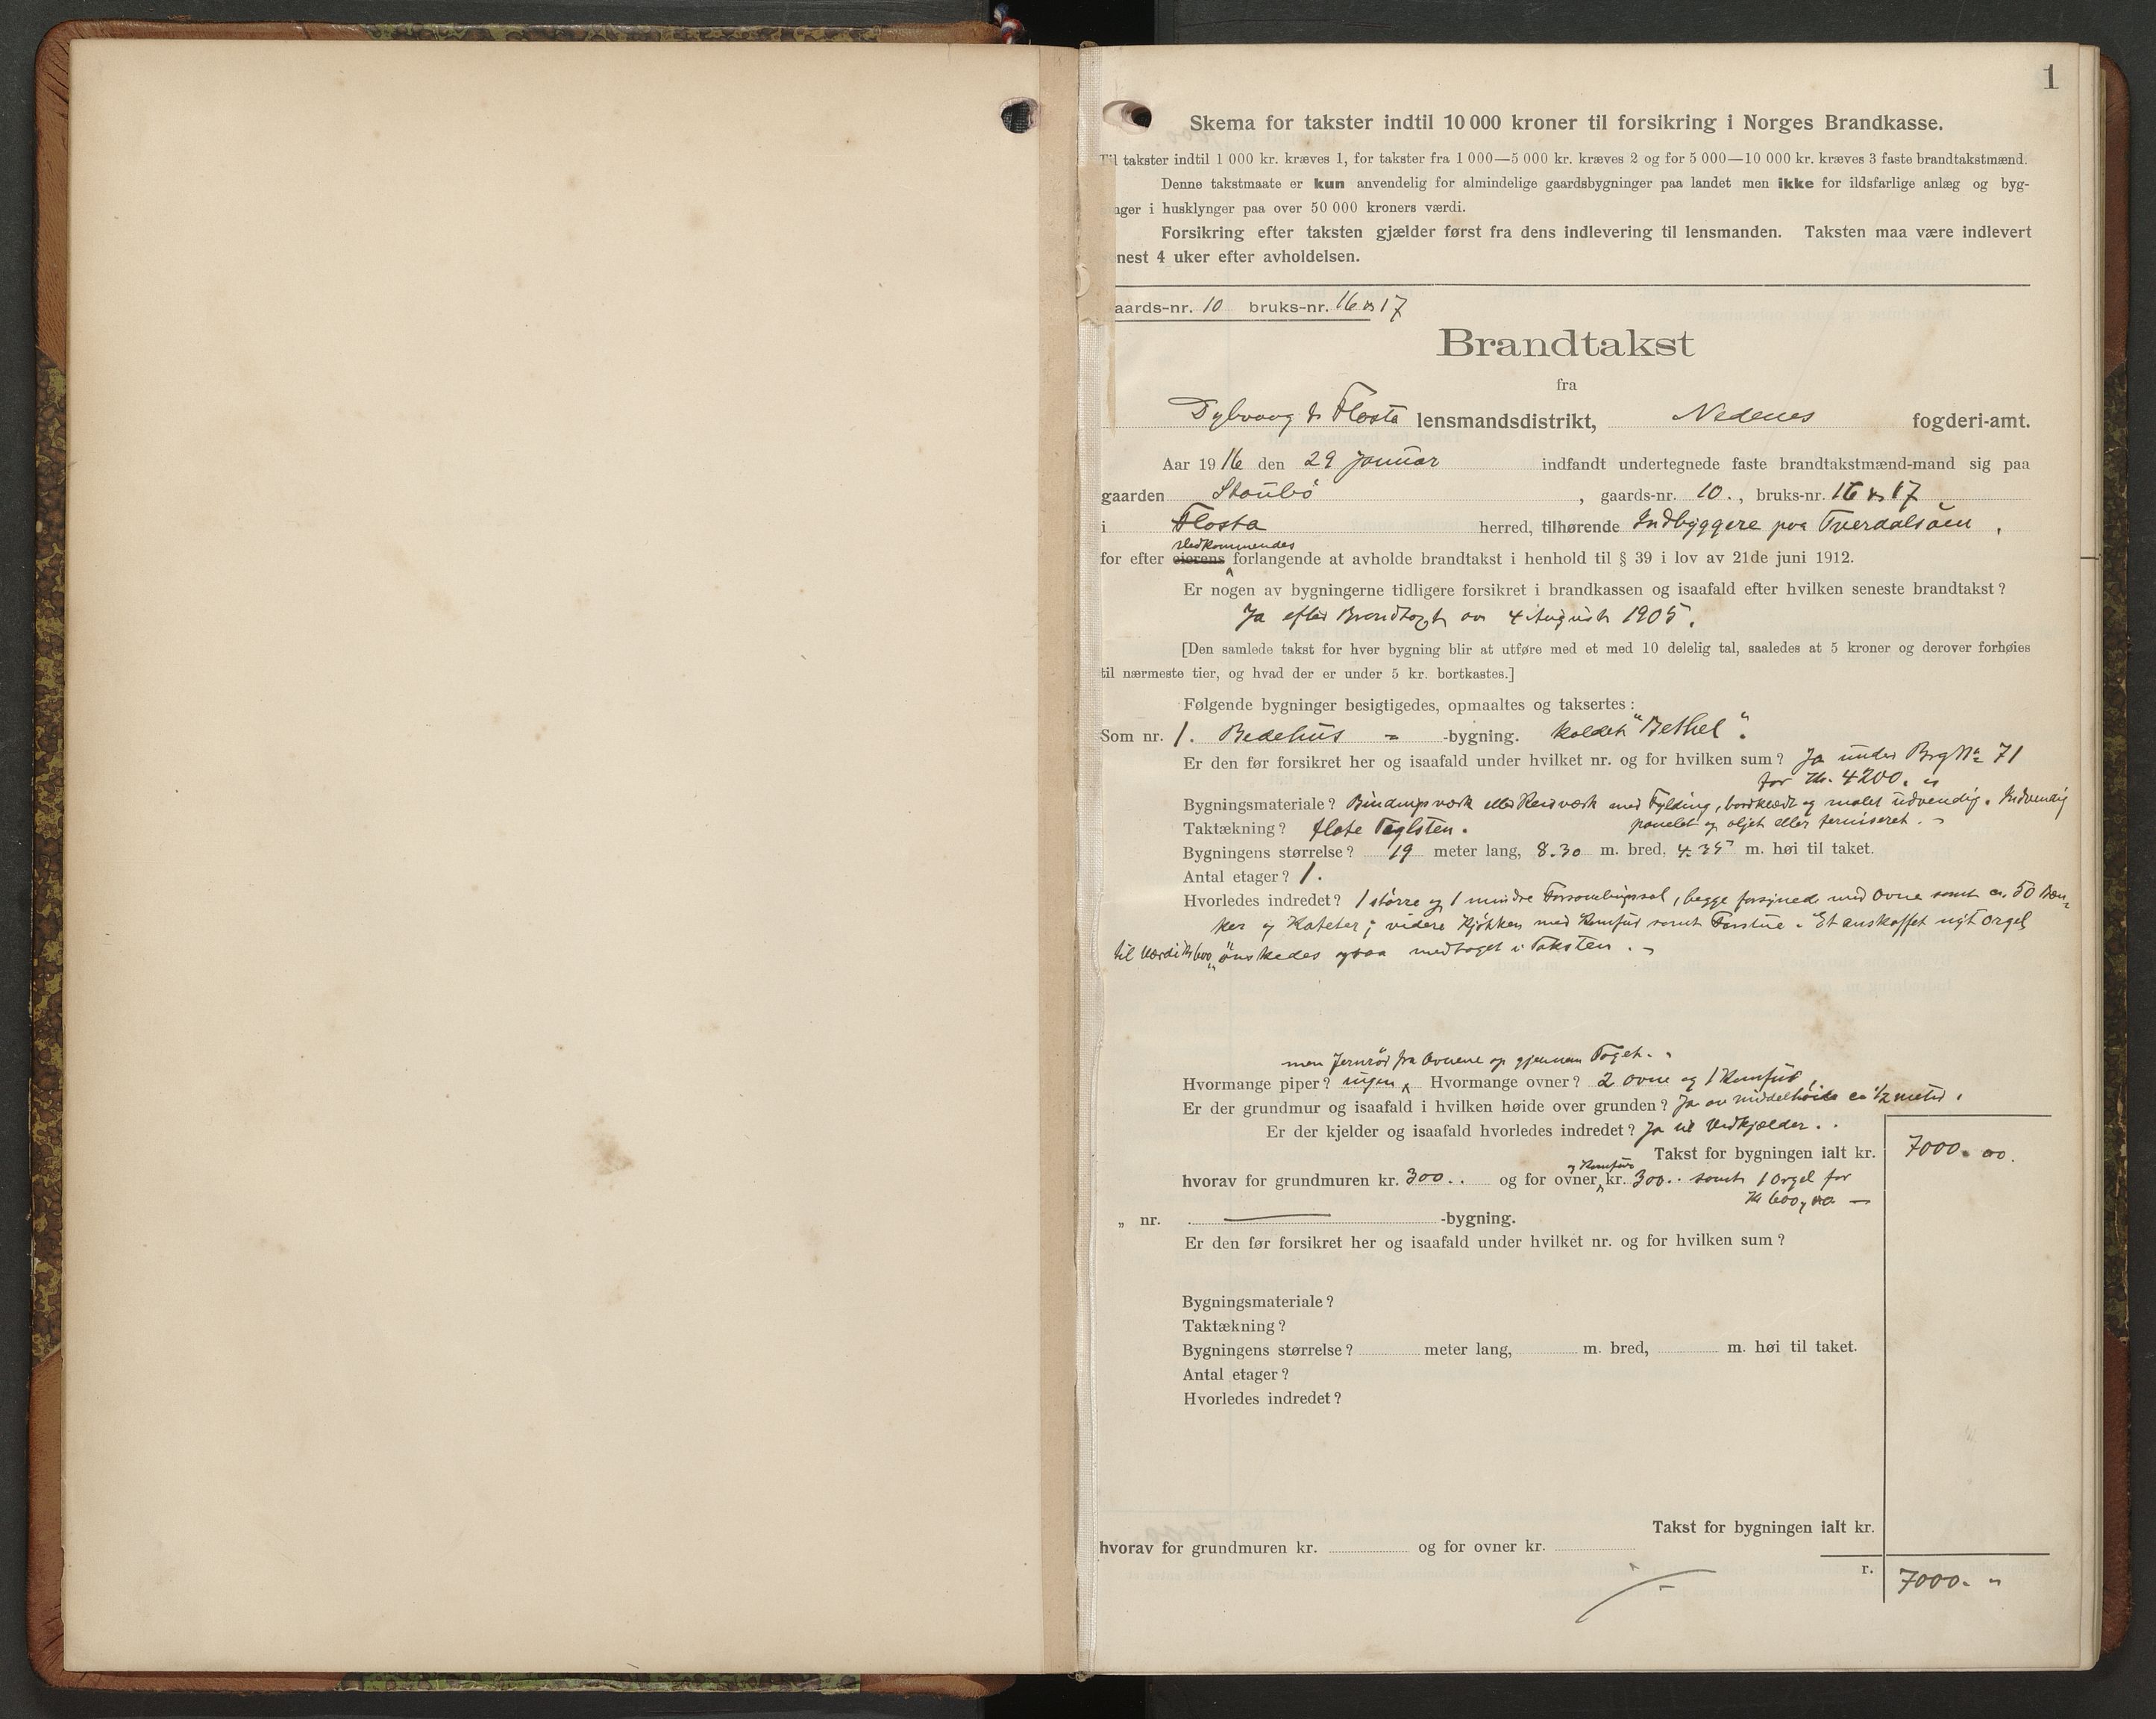 1
Skema for takster indtil 10 000 kroner til forsikring i Norges Brandkasse.
Til takster indtil 1 000 kr. kræves 1, for takster fra 1 000—5 000 kr. kræves 2 og for 5 000—10 000 kr. kræves 3 faste brandtakstmænd.
Denne takstmaate er kun anvendelig for almindelige gaardsbygninger paa landet men ikke for ildsfarlige anlæg og byg-
nger i husklynger paa over 50 000 kroners værdi.
Forsikring efter taksten gjælder først fra dens indlevering til lensmanden. Taksten maa være indlevert
nest 4 uker efter avholdelsen.
aards-nr. 10 bruks-nr. 16 & 17
Brandtakst
fra
Dybvaag & Flosta lensmandsdistrikt, Nedenes fogderi-amt.
Aar 1916 den 29 januar indfandt undertegnede faste brandtakstmænd-mand sig paa
gaarden Staubö, gaards-nr. 10., bruks-nr. 16 & 17
i Flosta herred, tilhørende Indbyggere paa Tverdalsöen,
Vedkommendes
for efter eierens forlangende at avholde brandtakst i henhold til § 39 i lov av 21de juni 1912.
Er nogen av bygningerne tidligere forsikret i brandkassen og isaafald efter hvilken seneste brandtakst?
Ja efter Brandtaxt av 4 August 1905.
[Den samlede takst for hver bygning blir at utføre med et med 10 delelig tal, saaledes at 5 kroner og derover forhøies
til nærmeste tier, og hvad der er under 5 kr. bortkastes.]
Følgende bygninger besigtigedes, opmaaltes og taksertes:
Som nr. 1. Bedehus -bygning. kaldet "Bethel".
Er den før forsikret her og isaafald under hvilket nr. og for hvilken sum? Ja under Byg No 71
for Kr. 4200.
Bygningsmateriale? Bindingsværk eller Reisværk med Fylding, bordklædt og malet udvendig. Indvendig
Taktækning? flate Taglsten. panelet og oljet eller ferniseret.
Bygningens størrelse? 19 meter lang, 8.30 m. bred, 4.35 m. høi til taket.
Antal etager? 1.
Hvorledes indredet? 1 större og 1 mindre Forsamlingssal, begge forsynede med Ovne samt ca. 50 Bæn-
ker og Kateter; videre Kjökken med Komfur samt Forstue. Et anskaffet nyt Orgel
til værdi Kr 600,, önskedes ogsaa medtaget i Taksten.
men Jernrör fra Ovnene op gjennem Taget.
Hvormange piper? ingen Hvormange ovner? 2 ovne og 1 Komfur,
Er der grundmur og isaafald i hvilken høide over grunden? Ja av middelhöide ca 1/2 meter.
Er der kjelder og isaafald hvorledes indredet? Ja til Vedkjælder.
Takst for bygningen ialt kr. 7000. 00.
og Komfur
hvorav for grundmuren kr. 300.. og for ovner kr. 300.. samt 1 Orgel for
Kr 600,00
„ nr. -bygning.
Er den før forsikret her og isaafald under hvilket nr. og for hvilken sum?
Bygningsmateriale?
Taktækning?
Bygningens størrelse? meter lang, m. bred, m. høi til taket.
Antal etager?
Hvorledes indredet?
Takst for bygningen ialt kr.
hvorav for grundmuren kr. og for ovner kr.
r. 7000. "